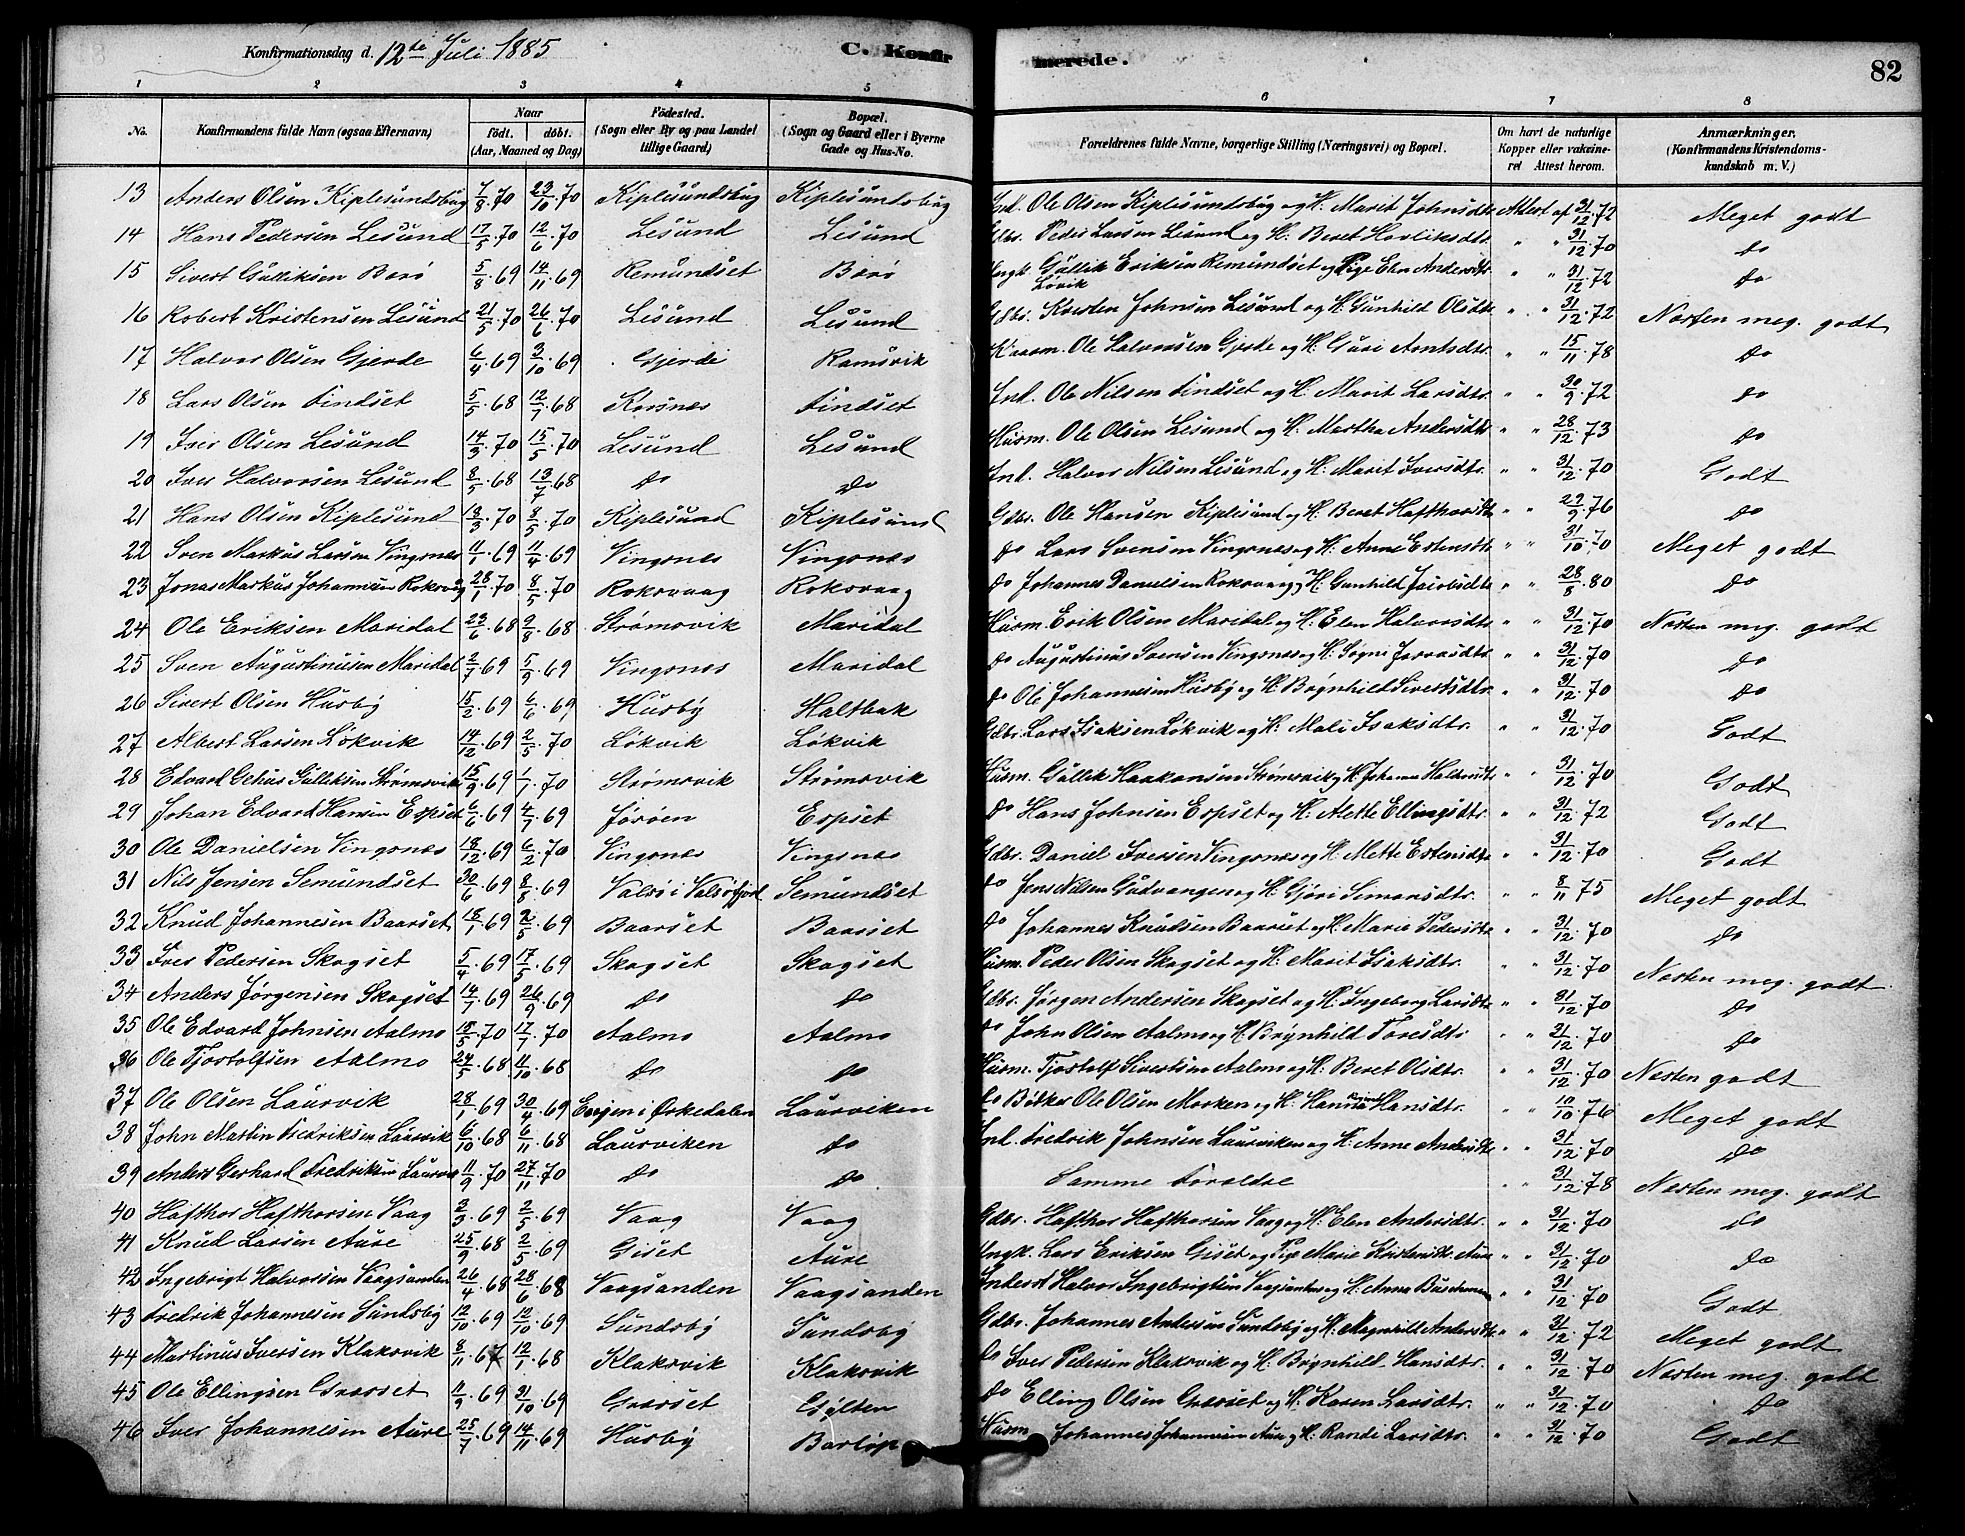 Konfirmationsdag d. 12te Juli 1885 C. Konfirmerede. 82
1 2 3 4 5 6 7 8
No. Konfirmandens fulde Navn (ogsaa Efternavn) Naar födt. döbt. (Aar, Maaned og Dag) Födested. (Sogn eller By og paa Landet tillige Gaard) Bopæl. (Sogn og Gaard eller i Byerne Gade og Hus-No. Forældrenes fulde Navne, borgerlige Stilling (Næringsvei) og Bopæl. Om havt de naturlige Kopper eller vaksineret Attest herom. Anmærkninger. (Konfirmandens Kristendomskundskab m. V.)
13 Anders Olsen Kiplesundsbug 7/8.70 23/10.70 Kiplesundsbug Kiplesundsbug Ind. Ole Olsen Kiplesundsbug og H. Marit Johnsdtr. Attest af 31/12.72 Meget godt
14 Hans Pedersen Lesund 17/5.70 12/6.70 Lesund Lesund Gdbr. Peder Larsen Lesund og H. Beret " " 31/12.70 do
15 Sivert Gulliksen Barø 5/8.69 14/11.69 Remundset Barø Ungk. Gullik Eriksen Remundset og Pige Elen Andersdtr. Lovik " " 31/12.72 do
16 Robert Kristensen Lesund 21/5.70 26/6.70 Lesund Lesund Gdbr. Kristen Johnsen Lesund og H. Gunhild Olsdtr. " " 31/12.72 Næsten meg. godt
17 Halvor Olsen Gjerde 6/4.69 3/10.69 Gjerde Ramsvik Ole Halvorsen Gjerde og H. Guri Arntsdtr. " " 15/11.78 do
18 Lars Olsen Findset 5/5.68 12/7.68 Korsnes Findset Ind. Ole Nilsen Findset og H. Marit Larsdtr. " " 30/9.72 do
19 Iver Olsen Lesund 14/3.70 15/5.70 Lesund Lesund Husm. Ole Olsen Lesund og H. Martha Andersdtr. " " 28/12.73 do
20 Iver Halvorsen Lesund 8/5.68 13/7.68 do do Ind. Halvor Nilsen Lesund og H. Marit Iversdtr. " " 31/12.70 Godt
21 Hans Olsen Kiplesund 13/3.70 8/5.70 Kiplesund Kiplesund Gdbr. Ole Hansen Kiplesund og H. Beret Hafthorsdtr. " " 29/9.76 do
22 Sven Markus Larsen Vingsnes 11/1.69 11/4.69 Vingsnes Vingsnes do Lars Svensen Vingsnes og H. Anne Estensdtr. " " 31/10.70 Meget godt
23 Jonas Markus Johannesen Roksvåg 28/1.70 8/5.70 Roksvaag Roksvaag do Johannes Danielsen Roksvaag og H. Gunhild Jacobsdtr. " " 28/8.80 do
24 Ole Eriksen Maridal 23/6.68 9/8.68 Strømsvik Maridal Husm. Erik Olsen Maridal og H. Elen Halvorsdtr. " " 31/12.70 Næsten meg. godt
25 Sven Augustinusen Maridal 2/7.69 5/9.69 Vingsnes Maridal do Augustinus Svensen Vingsnes og H. Signi " " 31/12.70 do
26 Sivert Olsen Husby 15/2.69 6/6.69 Husby Haltbak do Ole Johannesen Husby og H. Brynhild Sivertsdtr. " " 31/12.70 do
27 Albert Larsen Løkvik 14/12.69 2/5.70 Løkvik Løkvik Gdbr. Lars Isaksen Løkvik og H. Mali Isaksdtr. " " 31/12.70 Godt
28 Edvard Gulliksen Strømsvik 15/9.69 1/1.70 Strømsvik Strømsvik Husm. Gullik Haakonsen Strømsvik og H. Johanna " " 31/12.70 Godt
29 Johan Edvard Hansen Espset 6/6.69 4/7.69 Jøróen Espset do Hans Johnsen Espset og H. Alette Ellingsdtr. " " 31/12.72 Godt
30 Ole Danielsen Vingsnes 18/12.69 6/2.70 Vingsnes Vingsnes Gdbr. Daniel Iversen Vingsnes og H. Mette Estensdtr. " " 31/12.70 Godt
31 Nils Jensen Semundset 30/6.69 8/8.69 Valsø i Valsøfjord Semundset do Jens Nilsen Gudvangen og H. Gjøri Simonsdtr. " " 8/11.75 Meget godt
32 Knud Johannesen Baarset 18/1.69 2/5.69 Baarset Baarset do Johannes Knudsen Baarset og H. Marie Pedersdtr. " " 31/12.70 do
33 Iver Pedersen Skogset 5/4.69 17/5.69 Skogset Skogset Husm. Peder Olsen Skogset og H. Marit Isaksdtr. " " 31/12.70 Næsten meg. godt
34 Anders Jørgensen Skogset 14/7.69 26/9.69 do do Gdbr. Jørgen Andersen Skogset og H. Ingeborg Larsdtr. " " 31/12.70 do
35 Ole Edvard Johnsen Aalmo 18/5.70 17/7.70 Aalmo Aalmo do John Olsen Aalmo og H. Brynhild Toresdtr. " " 31/12.70 do
36 Ole Tjostolfsen Aalmo 24/5.68 11/10.68 do do Husm. Tjostolf Sivertsen Aalmo og H. Beret Olsdtr. " " 31/12.70 Næsten godt
37 Ole Olsen Laurvik 28/1.69 30/4.69 Evjen i Orkedalen Laurviken do Bødker Ole Olsen Morken og H. Hanna Hansdtr. " " 10/10.76 Meget godt
38 John Martin Fredriksen Laurvik 6/10.68 6/11.68 Laurviken do Ind. Fredrik Johnsen Laurviken og H. Anne Andersdtr. " " 31/12.70 do
39 Anders Gerhard Fredriksen Laurvik 11/9.70 27/11.70 do do Samme Foreldre " " 31/12.78 Næsten meg. godt
40 Hafthor Hafthorsen Vaag 2/3.69 2/5.69 Vaag Vaag Gdbr. Hafthor Hafthorsen Vaag og H. Elen Andersdtr. " " 31/12.70 do
41 Knud Larsen Aure 25/9.68 2/5.69 Giset Aure Ungk. Lars Eriksen Giset og Pige Marie Kristensdtr. Aure " " 31/12.70 do
42 Ingebrigt Halvorsen Vaagsanden 26/4.68 28/6.68 Vaagsanden Vaagsanden Inderst Halvor Ingebrigtsen Vaagsanden og H. Anna Buschmann " " 31/12.70 Godt
43 Fredrik Johannesen Sundsby 12/10.69 12/10.69 Sundsby Sundsby Gdbr. Johannes Andersen Sundsby og H. Magnhild Andersdtr. " " 31/12.72 Meget godt
44 Martinus Iversen Klaksvik 8/11.67 12/1.68 Klaksvik Klaksvik do Iver Pedersen Klaksvik og H. Brynhild Hansdtr. " " 31/12.70 Næsten meg. godt
45 Ole Ellingsen Grøsset 11/9.69 31/10.69 Grøsset Gylten do Elling Olsen Grøsset og H. Karen Larsdtr. " " 31/12.70 do
46 Iver Johannesen Aure 25/7.69 14/11.69 Husby Husm. Johannes Johannesen Aure og H. Randi Larsdtr. " " 31/12.70 Godt